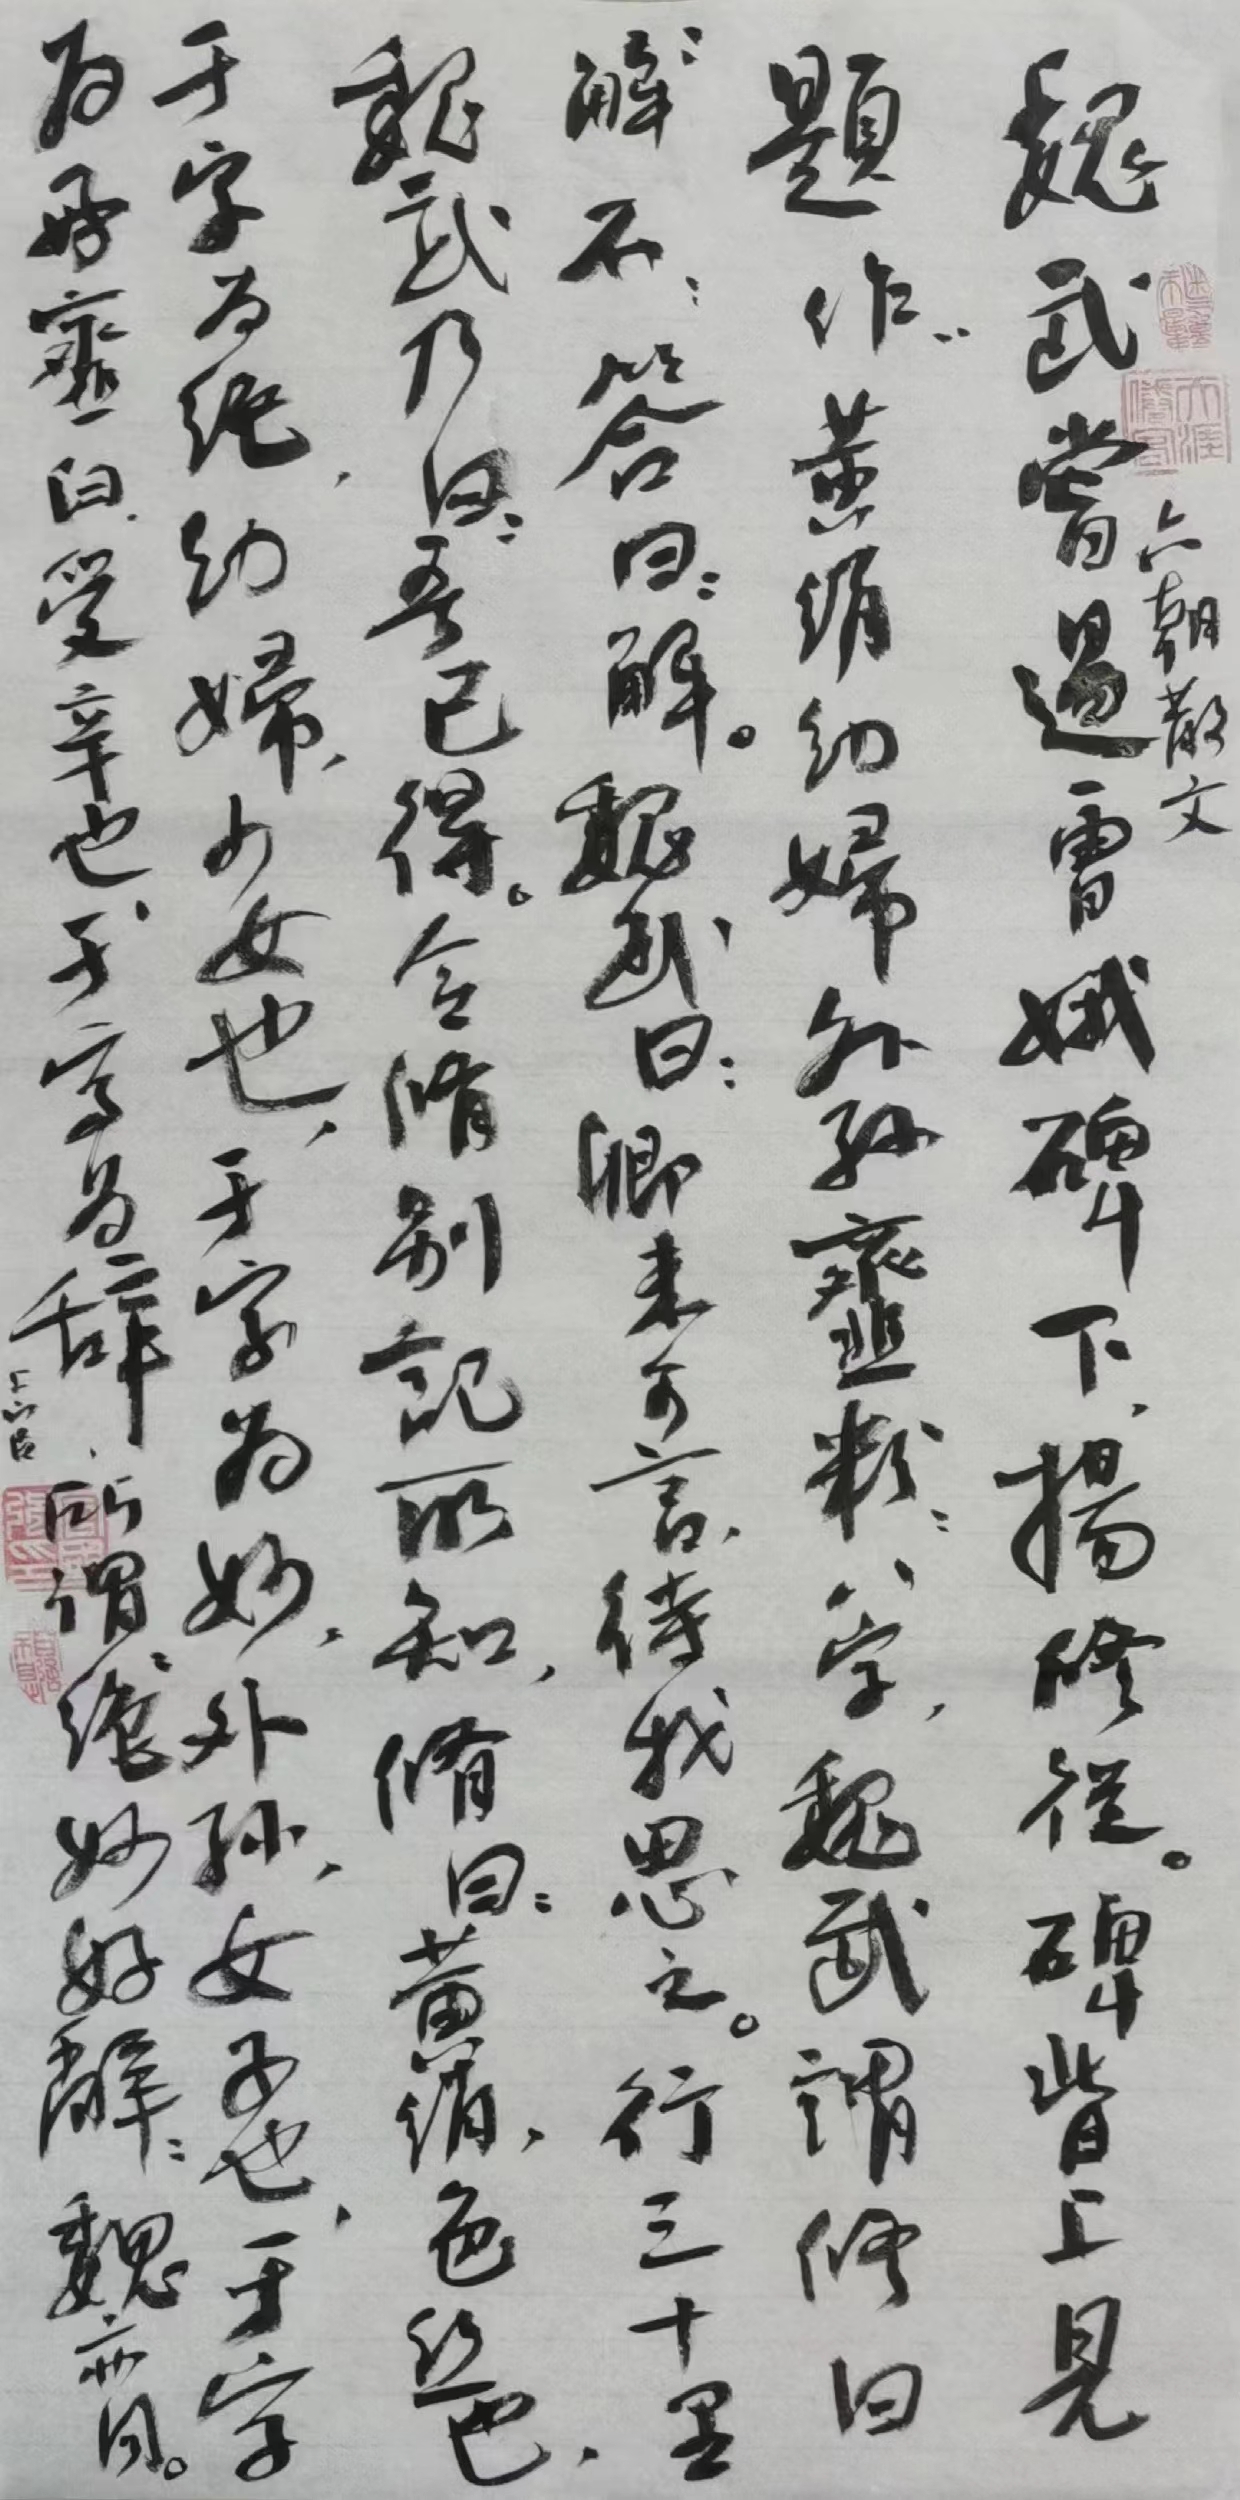 六朝散文
魏武嘗過曹娥碑下，揚修從。碑背上見
題作：黃絹幼婦外孫虀麰：八字，魏武謂修曰：
解不：答曰：解。魏武曰：卿未可言，待我思之。行三十里
魏武乃曰：吾已得。令脩別記所知，脩曰：黃絹，色絲也，
于字為絕，幼婦，少女也，于字為妙，外孫，女子也，于字
為好，虀臼，受辛也，于字為辭，所謂：絕妙好辭：魏亦同。